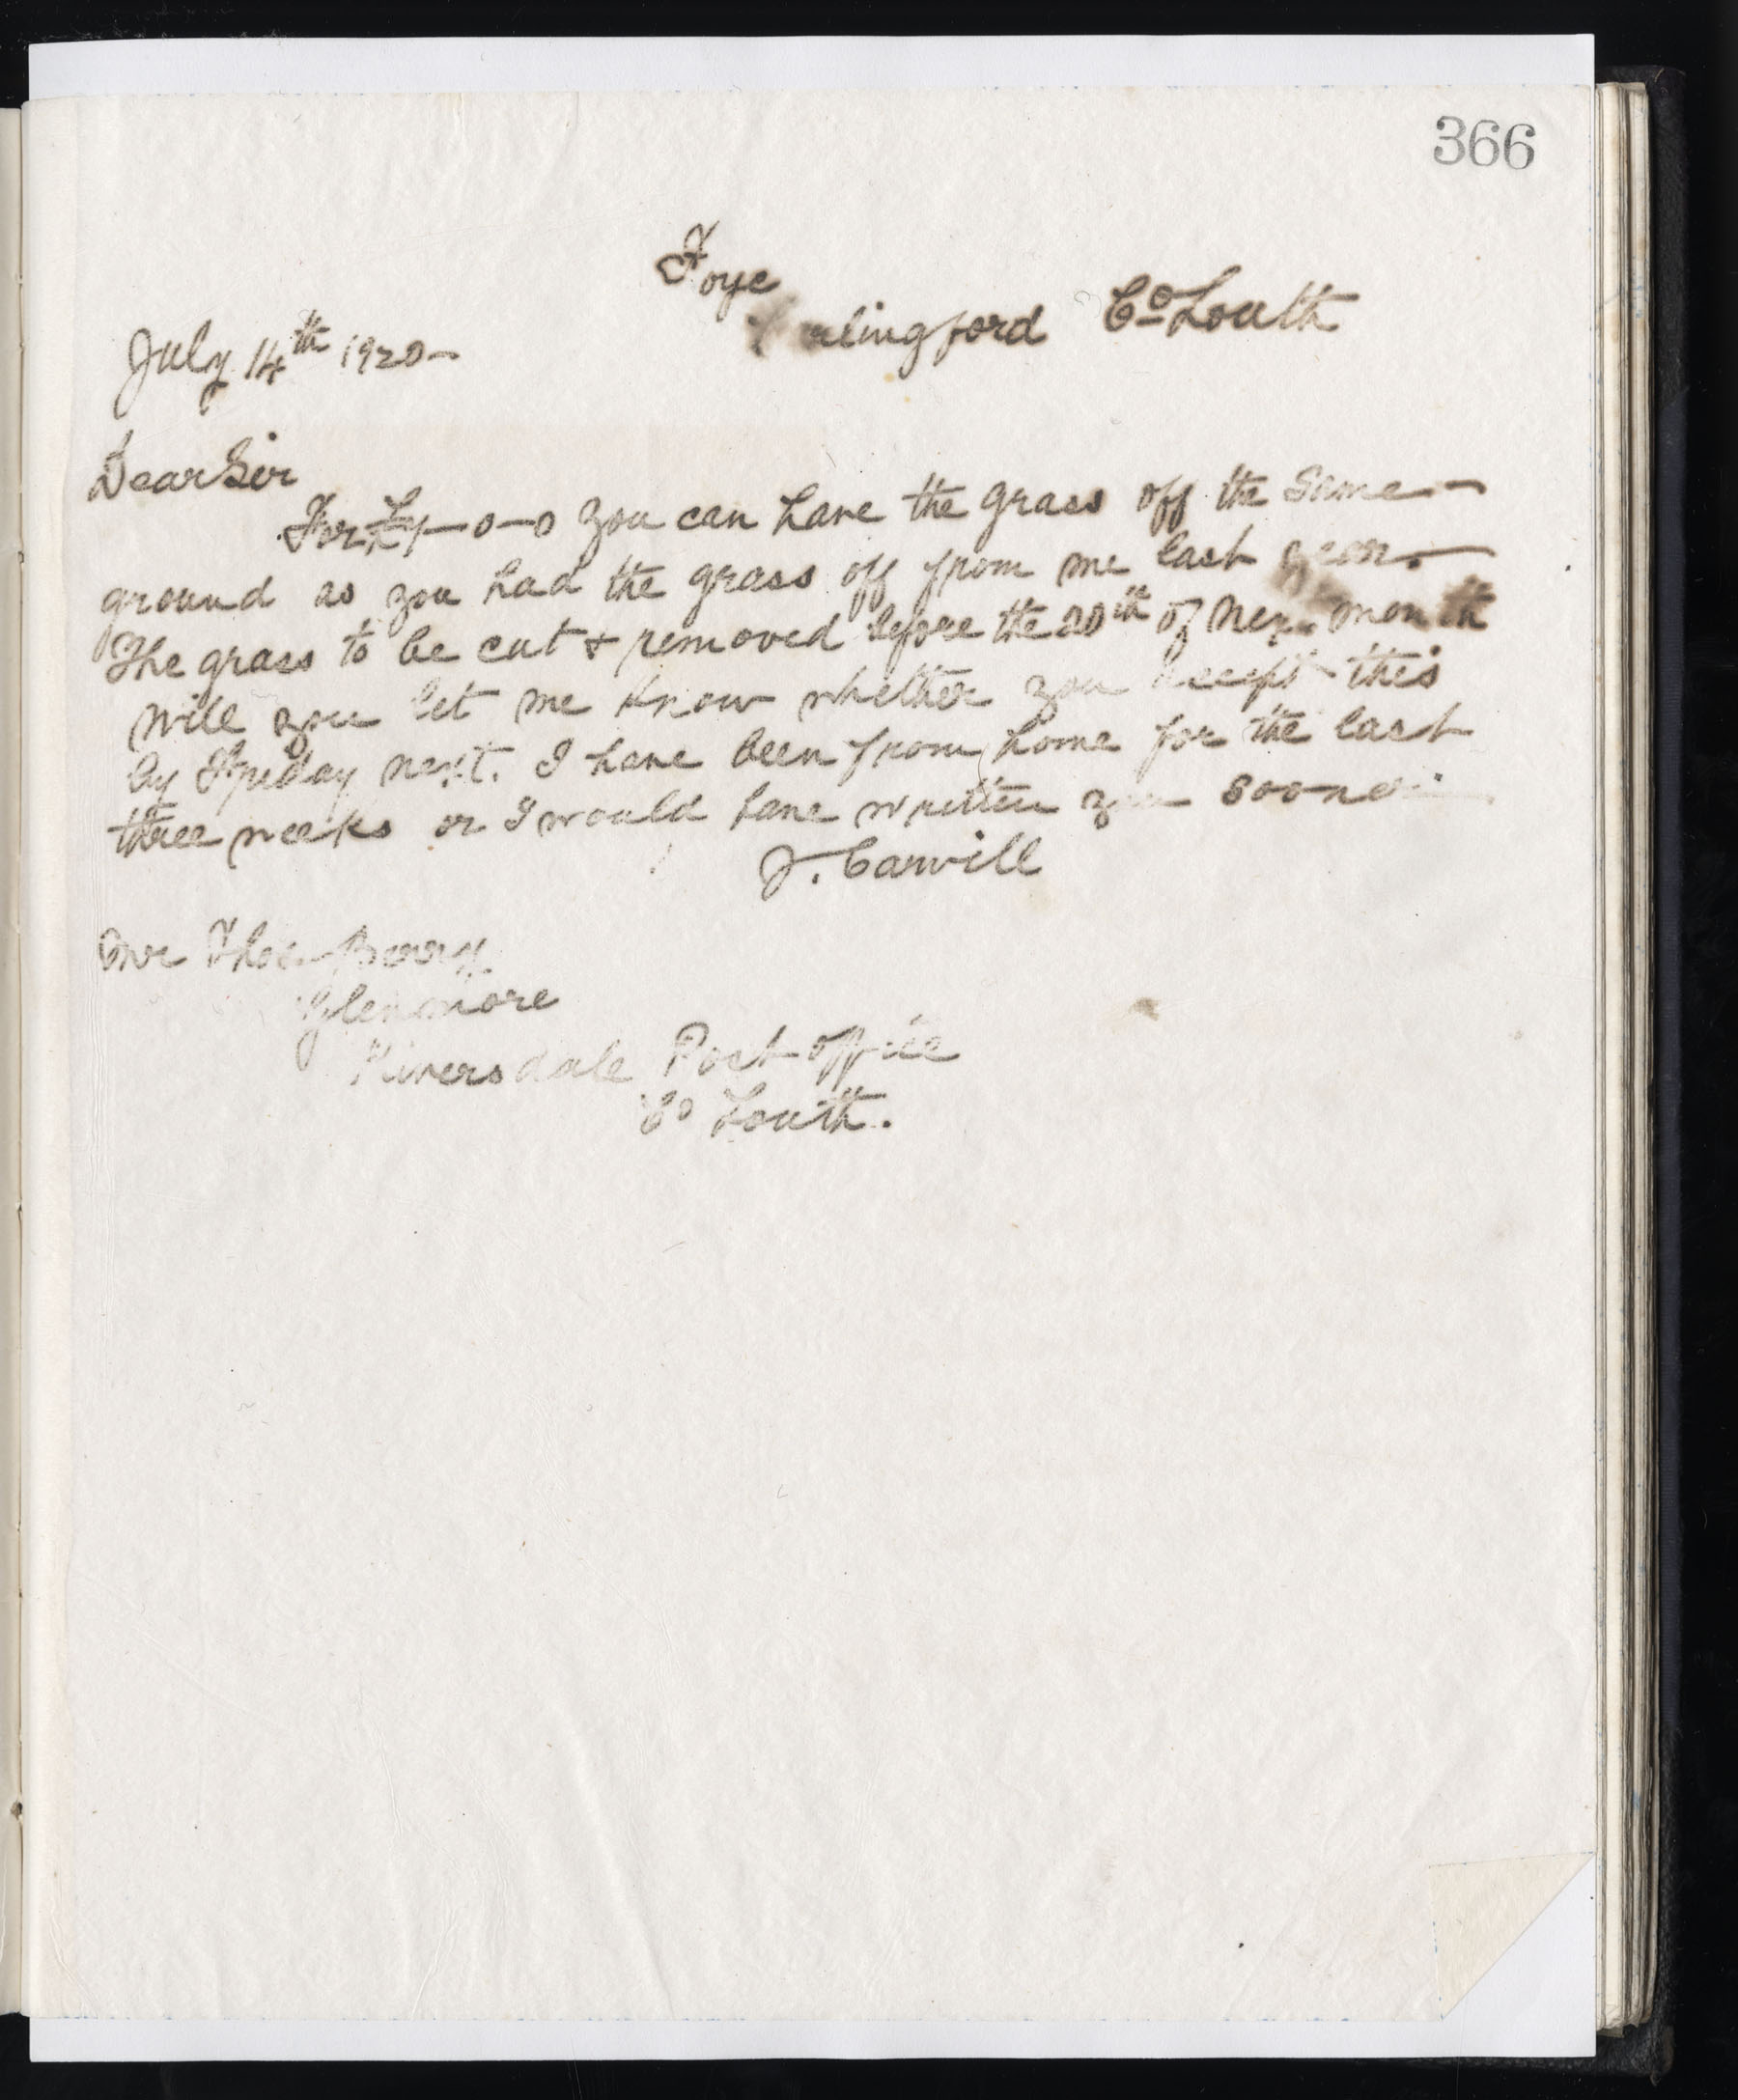 366
Foye
Carlingford Co Louth
July 14th 1920-
Dear Sir
For £1-0-0 you can have the grass off the same-
ground as you had the grass off from me last year.
The grass to be cut & removed before the 20th of next month
will you let me know whether you accept this
by Friday next. I have been from home for the last
three weeks or I would have written you sooner
J. Carvill
Mr Thos Berry
Glenmore
Riversdale Post office
Co Louth.